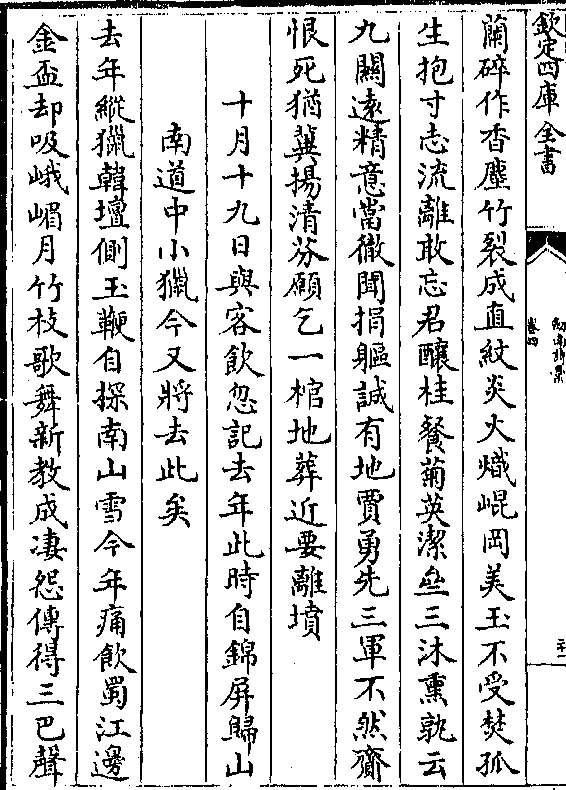 欽定四庫全書
劍南詩稾
卷四
蘭碎作香塵竹裂成直紋炎火熾崐岡美玉不受焚孤
生抱寸志流離敢忘君釀桂餐菊英潔齋三沐熏孰云
九關遠精意當徹聞捐軀誠有地賈勇先三軍不然齎
恨死猶冀揚清芬願乞一棺地葬近要離墳
十月十九日與客飲忽記去年此時自錦屏歸山
南道中小獵今又將去此矣
去年縱獵韓壇側玉鞭自探南山雪今年痛飲蜀江邊
金盃却吸峨嵋月竹枝歌舞新教成凄怨傳得三巴聲